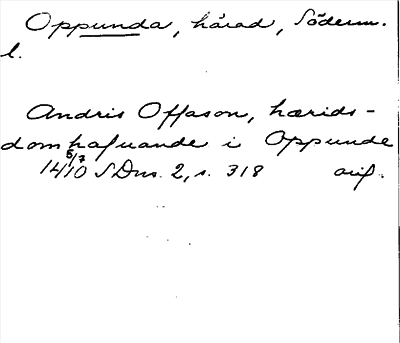 Oppunda, härad, Söderm.
l.
Andris Offason, hærids-
domhafuande i Oppunde
5/7 1410 SDns. 2, s. 318 avs.